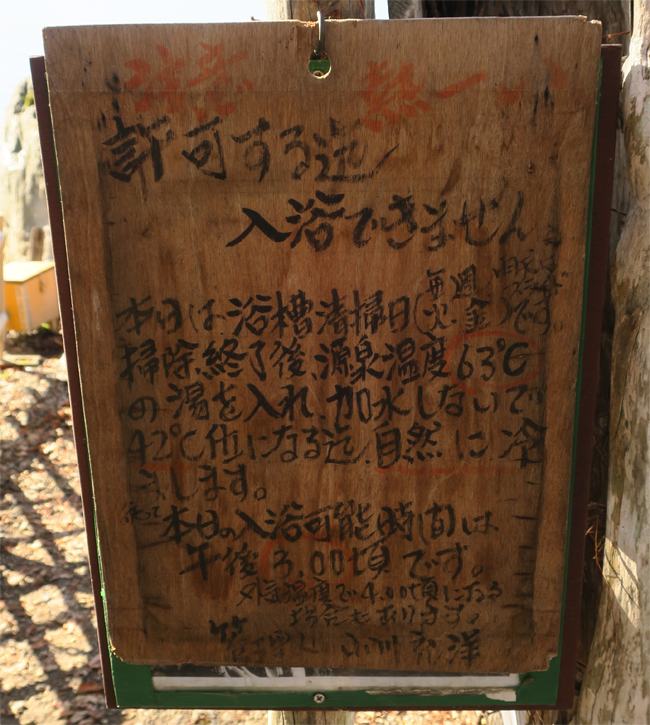 注意 熱一い
許可する迄
入浴できません
本日は浴槽清掃日(毎週火金)です。
掃除終了後、源泉温度63℃
の湯を入れ、加水しないで
42℃位になる迄、自然に冷
まします。
依って本日の入浴可能時間は
午後3.00頃です。
外気温度で4.00頃になる
場合もあります。
管理人 小川